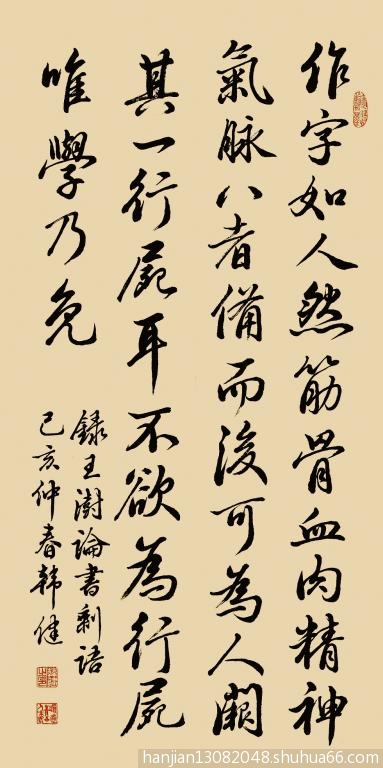 作字如人然筋骨血肉精神
氣脉八者備而後可為人闕
其一行屍耳不欲為行屍
唯學乃免
録王澍論書剩語
己亥仲春韓健
hanjian13082048.shuhua66.com